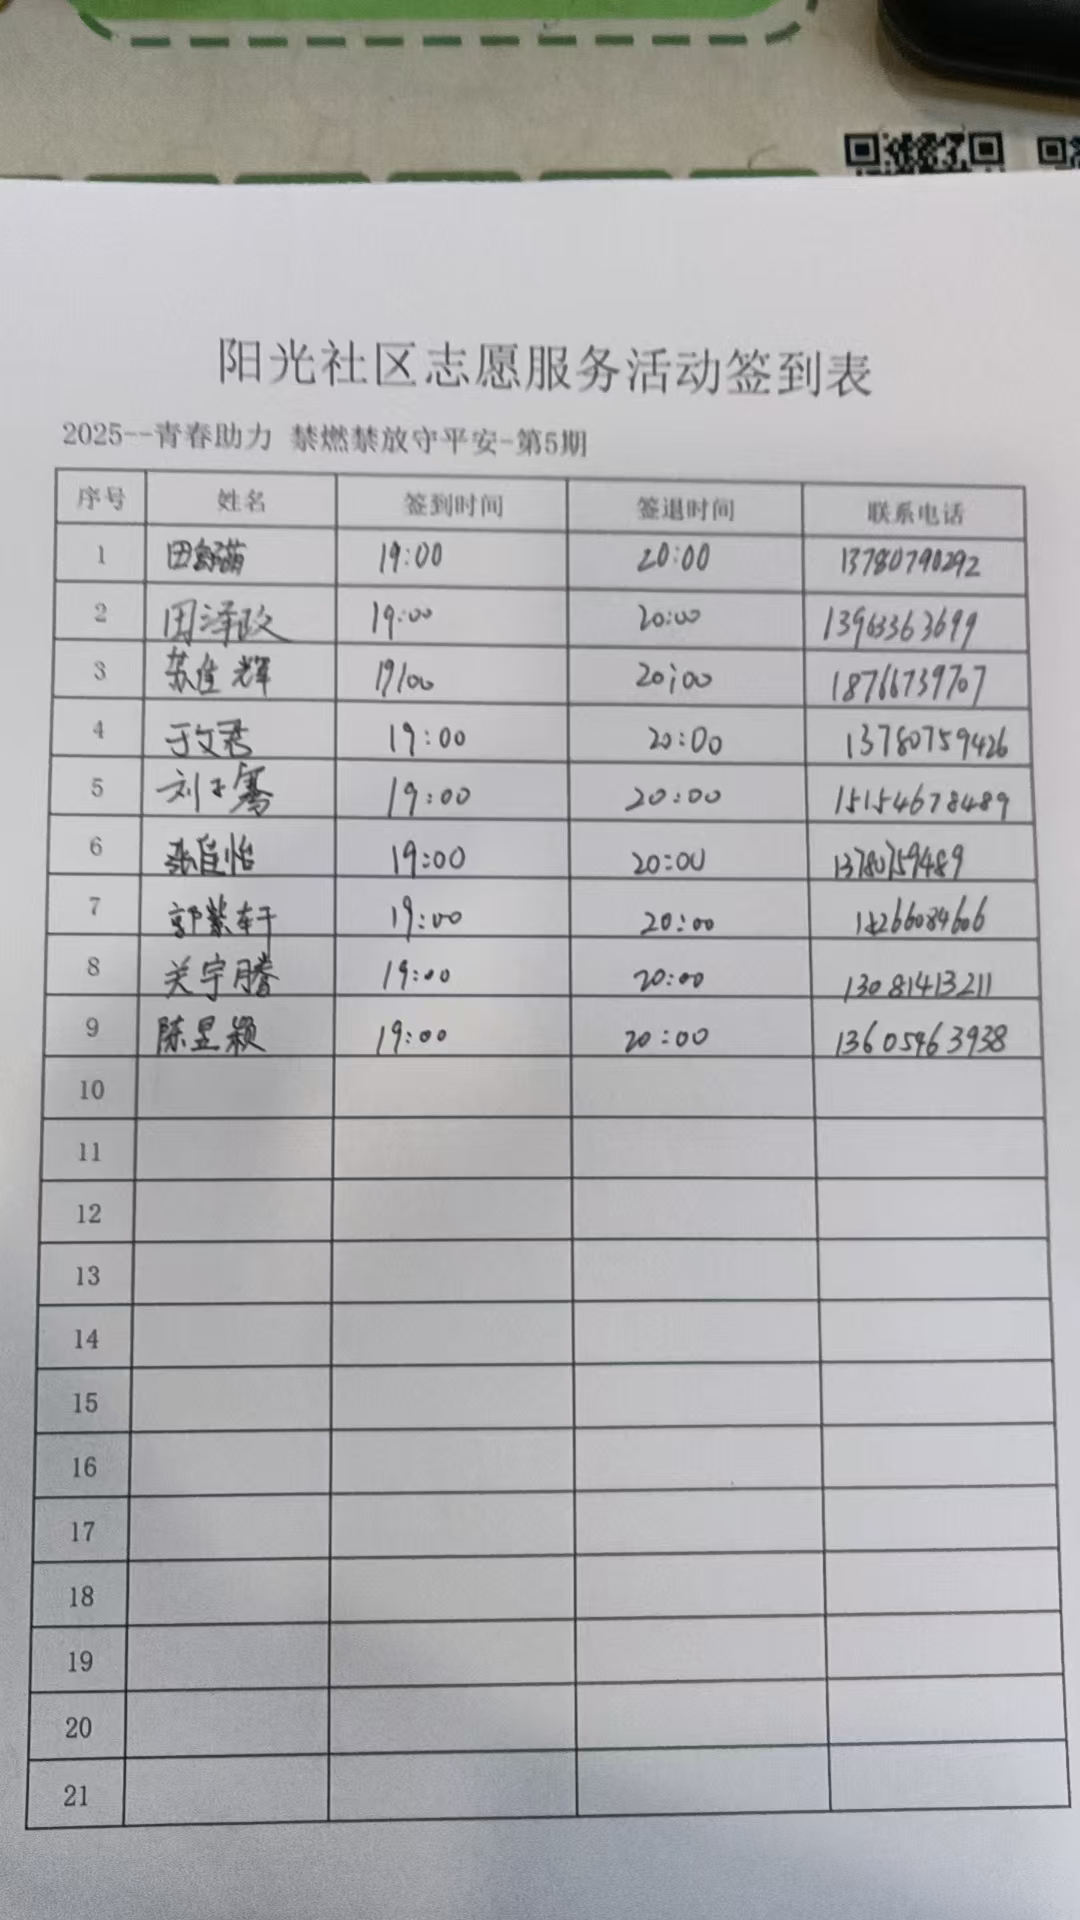 阳光社区志愿服务活动签到表
2025--青春助力 禁燃禁放守平安-第5期
序号 姓名 签到时间 签退时间 联系电话
1 田 19:00 20:00 13780790292
2 田泽政 19:00 20:00 13963363699
3 苏佳辉 19:00 20:00 18766739707
4 于文君 19:00 20:00 13780759426
5 刘子骞 19:00 20:00 15154678489
6 张佳怡 19:00 20:00 13780759489
7 郭紫轩 19:00 20:00
8 关宇腾 19:00 20:00 13081413211
9 陈昱颖 19:00 20:00 13605463938
10
11
12
13
14
15
16
17
18
19
20
21